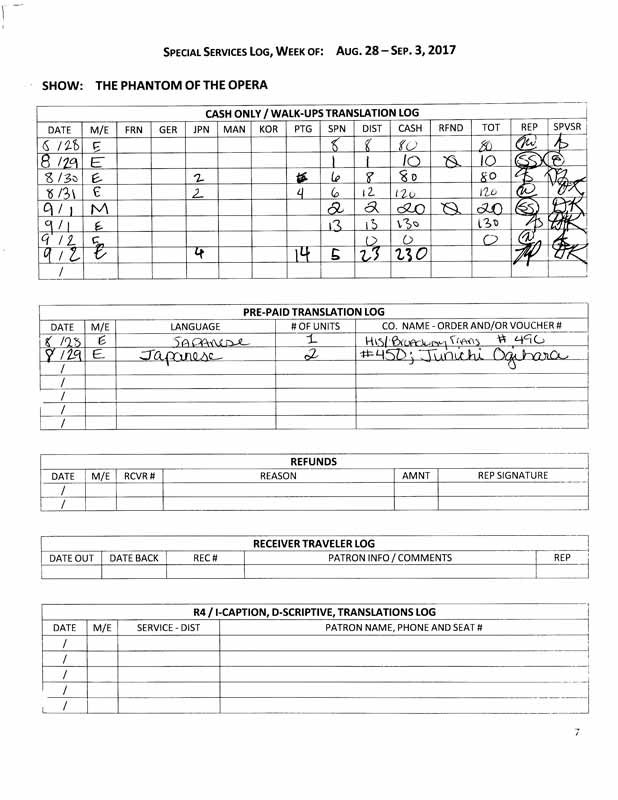 SPECIAL SERVICES LOG, WEEK OF: AUG. 28 – SEP. 3, 2017
SHOW: THE PHANTOM OF THE OPERA
CASH ONLY / WALK-UPS TRANSLATION LOG
DATE M/E FRN GER JPN MAN KOR PTG SPN DIST CASH RFND TOT REP SPVSR
8/28 E 8 8 80 80
8/29 E 1 1 10 0 10 SS
8/30 E 2 6 8 80 80
8/31 E 2 4 6 12 120 120
9/1 M 2 2 20 0 20 SS DK
9/1 E 13 13 130 130 DK
9/2 E 0 0 0
9/2 E 4 14 5 23 230 DK
/
PRE-PAID TRANSLATION LOG
DATE M/E LANGUAGE # OF UNITS CO. NAME - ORDER AND/OR VOUCHER #
8/28 E JAPANESE 1 HIS/Broadway Trans # 49C
8/29 E Japanese 2 #45D; Junichi Ogihara
/
/
/
/
/
REFUNDS
DATE M/E RCVR # REASON AMNT REP SIGNATURE
/
/
RECEIVER TRAVELER LOG
DATE OUT DATE BACK REC # PATRON INFO / COMMENTS REP
R4 / I-CAPTION, D-SCRIPTIVE, TRANSLATIONS LOG
DATE M/E SERVICE - DIST PATRON NAME, PHONE AND SEAT #
/
/
/
/
/
7